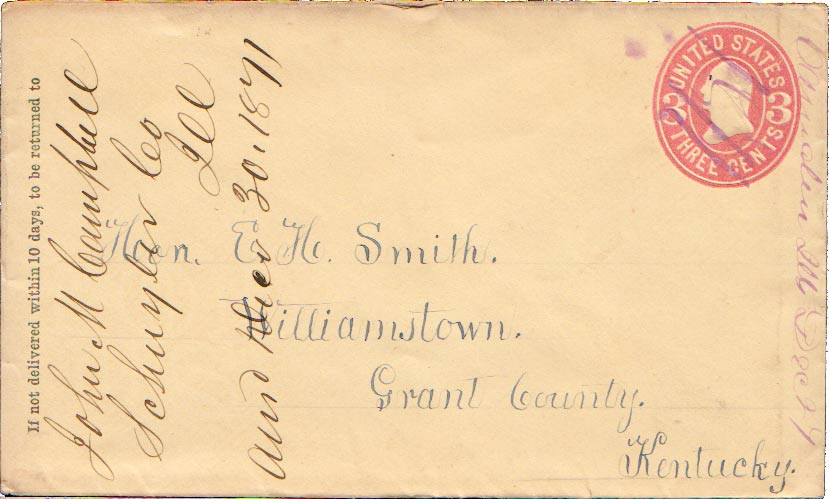 If not delivered within 10 days, to be returned to
John M Campbell
Schuyler Co
Ill
30. 1871
UNITED STATES
3 3
THREE CENTS
Hon. E. H. Smith.
Williamstown.
Grant County.
Kentucky.
Ill Dec 24